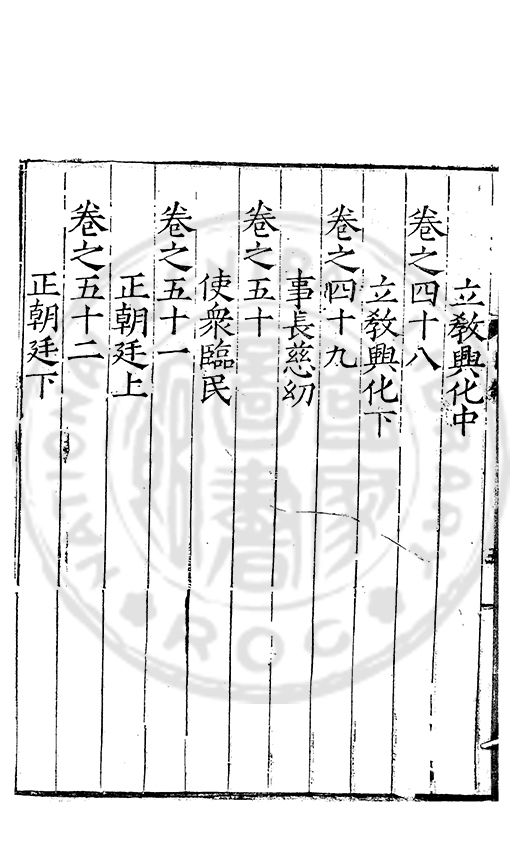 立敎興化中
卷之四十八
立敎興化下
卷之四十九
事長慈幼
卷之五十
使衆臨民
卷之五十一
正朝廷上
卷之五十二
正朝廷下